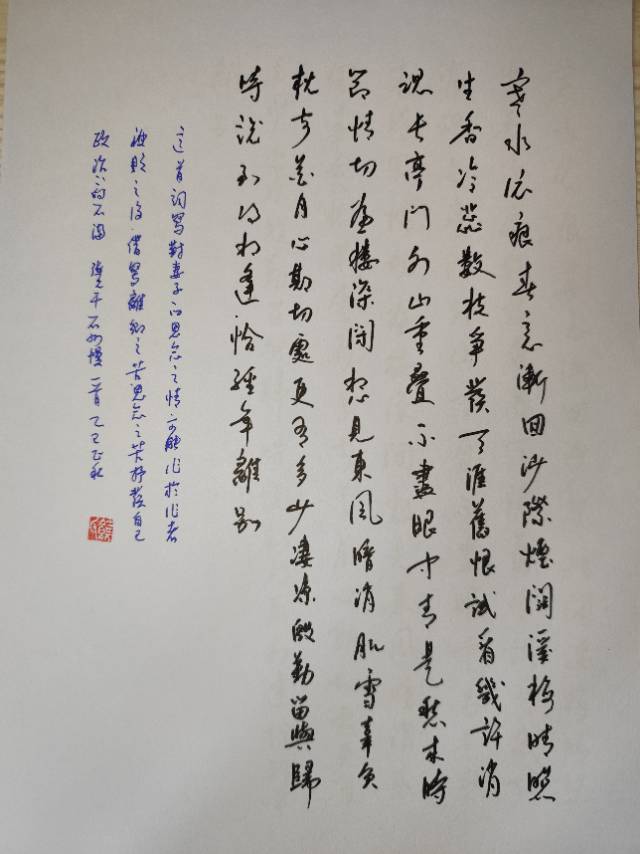 寒水依痕春意漸回沙際煙闊溪梅晴照
生香冷蕊數枝爭發天涯舊恨試看幾許消
魂長亭門外山重疊不盡眼中青是愁來時
節情切畫樓深閉想見東風暗消肌雪辜負
枕前花月心期切處更有多少凄凉殷勤留與歸
時說到得相逢恰經年離別
這首詞寫對妻子的思念之情可能作於作者
被貶之後借寫離鄉之苦思念之苦抒發自己
政治上的不滿 張元干石州慢一首 乙巳